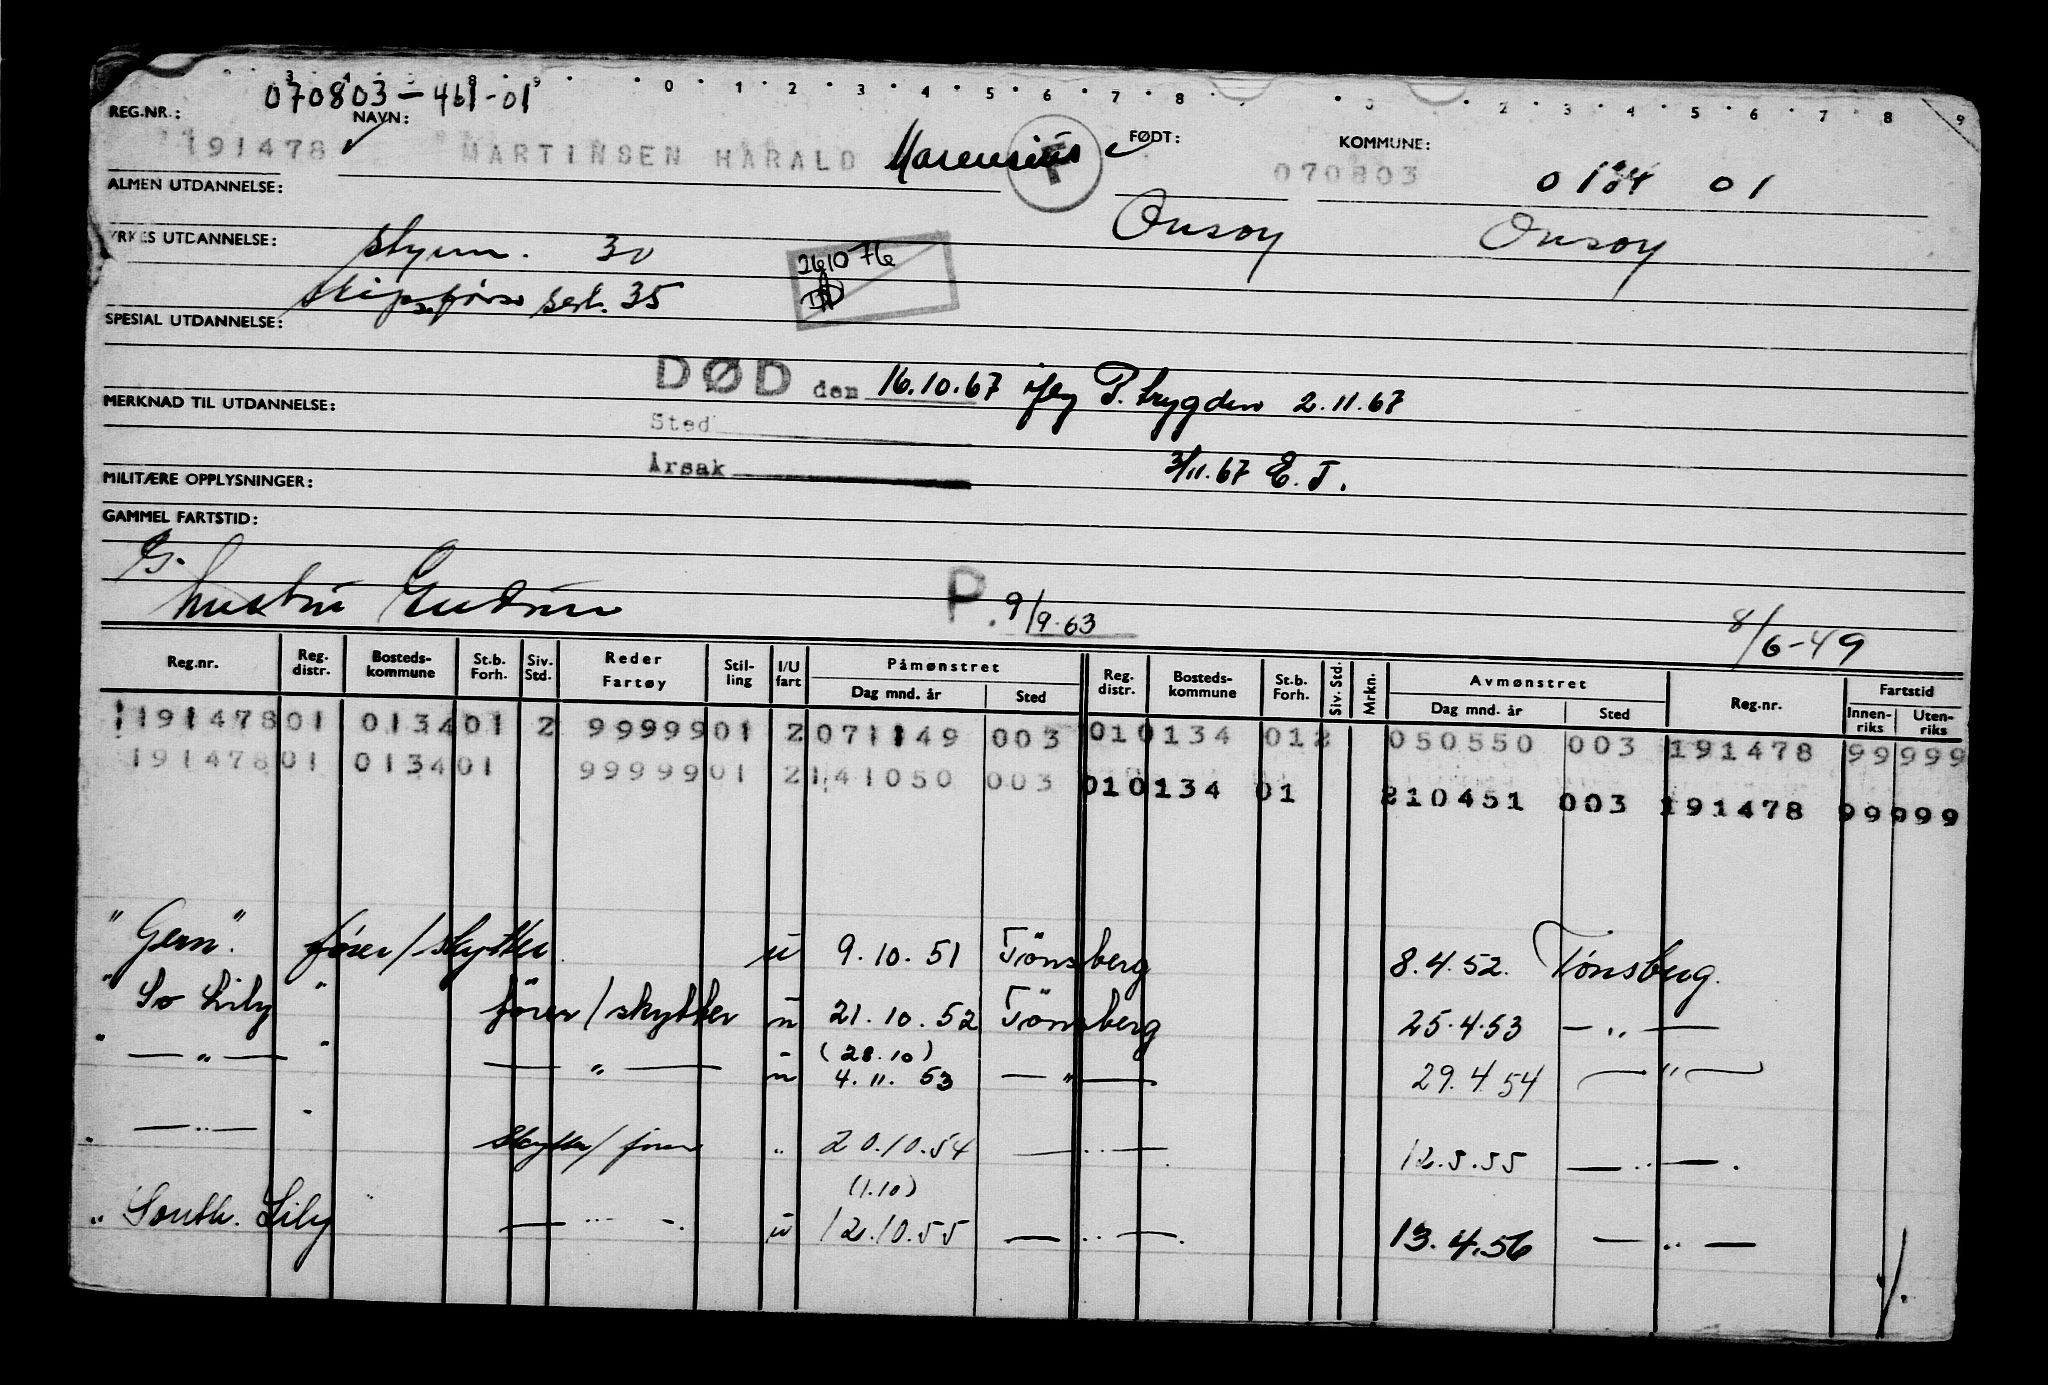 3 4 8 9 0 1 2 3 4 5 6 7 8 2 3 4 5 6 7 8 9
070803-461-01
REG.NR.: NAVN: FØDT: KOMMUNE:
191478 MARTINSEN HARALD Marensius F 070803 0134 01
ALMEN UTDANNELSE:
Onsøy Onsøy
YRKES UTDANNELSE: styrm. 30
261076
skipsfører sert. 35
SPESIAL UTDANNELSE:
DØD den 16.10.67 iflg P. trygden 2.11.67
MERKNAD TIL UTDANNELSE:
Sted
Årsak 3/11.67 E. J.
MILITÆRE OPPLYSNINGER:
GAMMEL FARTSTID:
G.
hustru P. 9/9.63
8/6-49
Reg.nr. Reg. distr. Bosteds-kommune St.b. Forh. Siv. Std. Reder Fartøy Stil-ling I/U fart Påmønstret Dag mnd. år Sted Reg. distr. Bosteds-kommune St.b. Forh. Siv. Std. Mrkn. Avmønstret Dag mnd. år Sted Reg.nr. Fartstid Innen-riks Uten-riks
191478 01 0134 01 2 99999 01 2 071149 003 01 0134 01 2 050550 003 191478 99 999
191478 01 0134 01 99999 01 2 141050 003 01 0134 01 210451 003 191478 99 999
"Gern". fører/skytter u 9.10.51 Tönsberg 8.4.52. Tønsberg.
"So Lily" fører/skytter u 21.10.52 Tönsberg 25.4.53 — " —
(28.10)
" — " — " — " — u 4.11.53 — " — 29.4.54 — " —
" — " — " Skytter/fører " 20.10.54 — " — 12.5.55 — " —.
(1.10)
"South. Lily" — " — u 12.10.55 — " —. 13.4.56 — " —